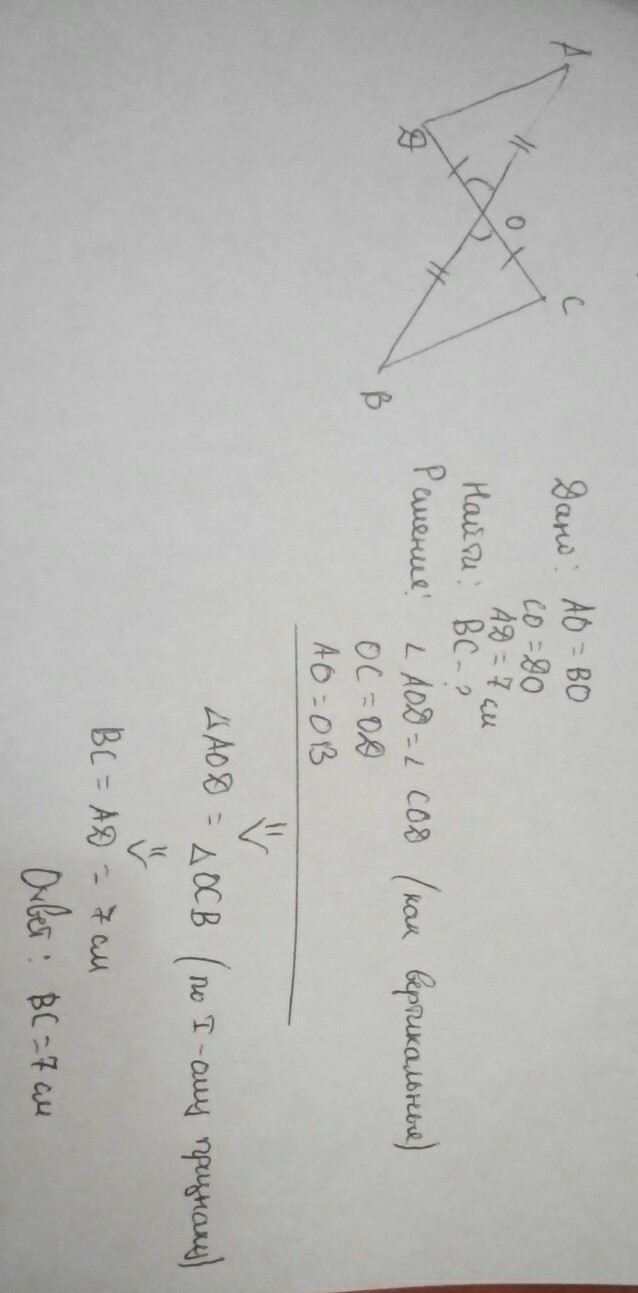 A
D
O
C
B
Дано: AO = BO
CO = DO
AD = 7 см
Найти: BC - ?
Решение: ∠ AOD = ∠ COD (как вертикальные)
OC = OD
AO = OB
⇓
△AOD = △OCB (по I-ому признаку)
⇓
BC = AD = 7 см
Ответ: BC = 7 см